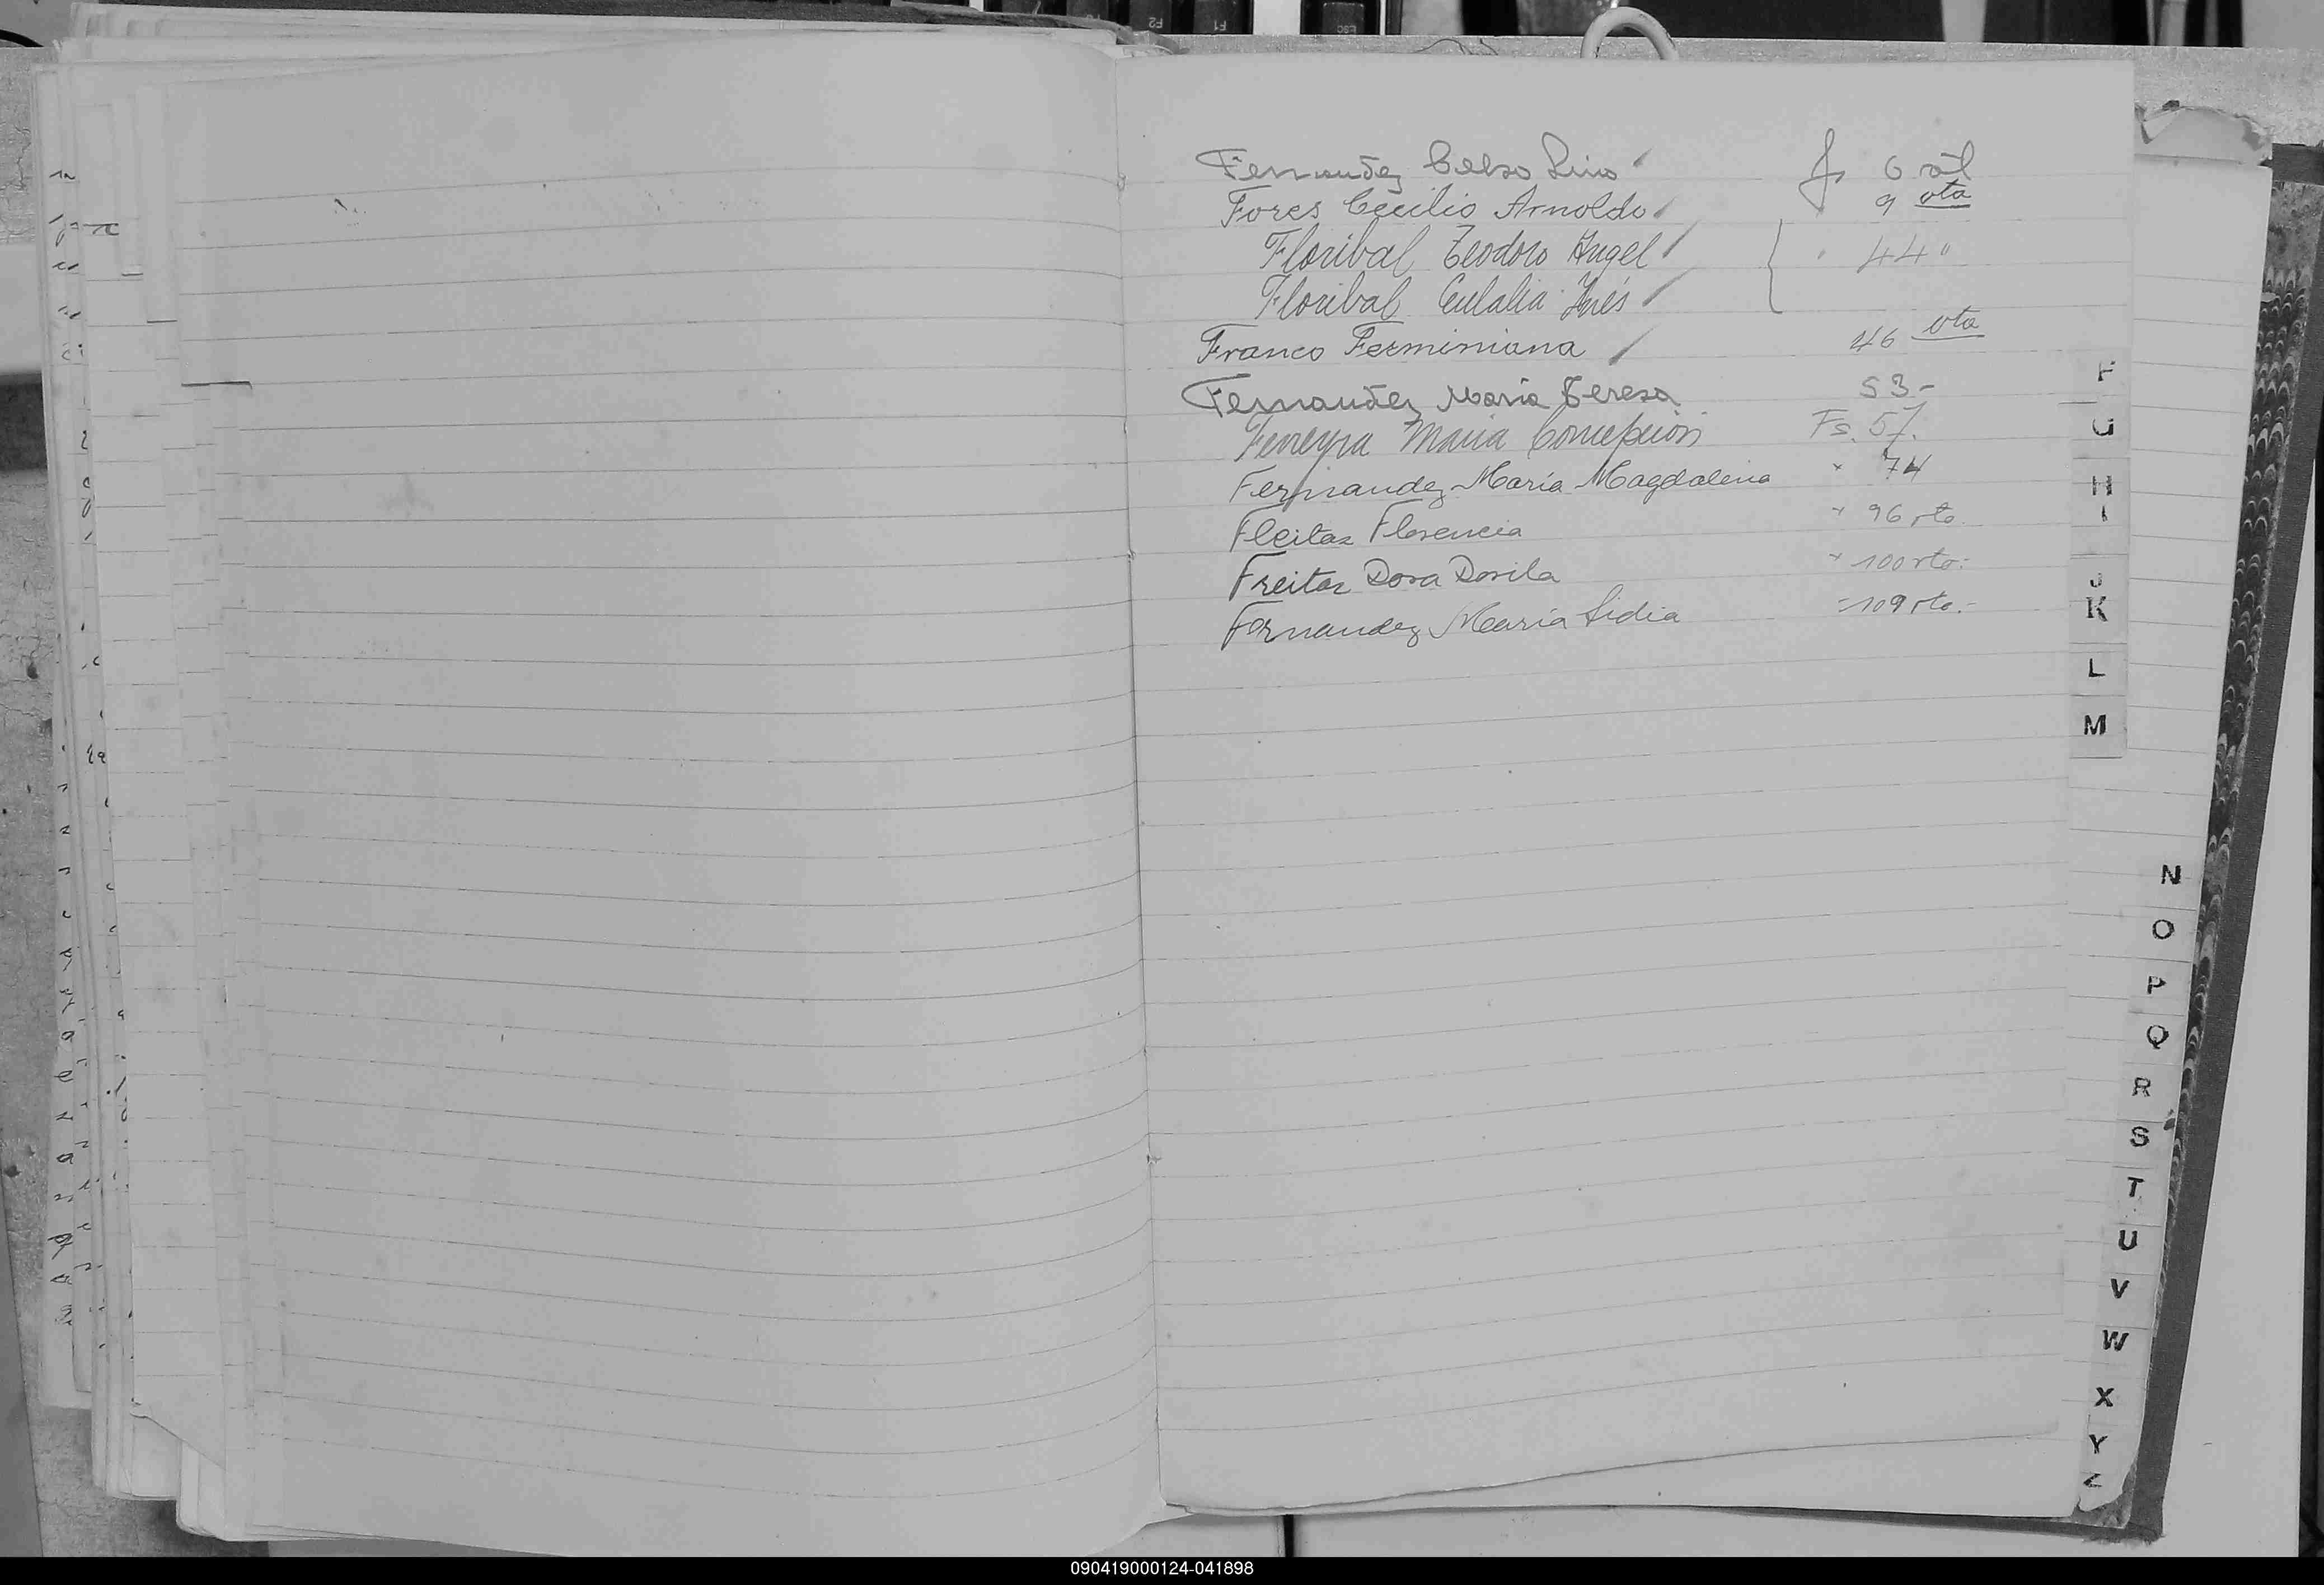 Fernandez Celso Lino fs 6
Fores Cecilio Arnoldo 9 vta
Floribal Teodoro Angel " 44 "
Floribal Eulalia Inés
Franco Ferminiana 46 vta
Fernandez María Teresa 53-
Ferreyra Maria Concepción Fs. 57.
Fernandez María Magdalena " 74
Fleitas Florencia " 96 vto.
Freitas Dora Dorila " 100 vto.-
Fernandez María Lidia " 109 vto.-
F
G
H
I
J
K
L
M
N
O
P
Q
R
S
T
U
V
W
X
Y
Z
090419000124-041898